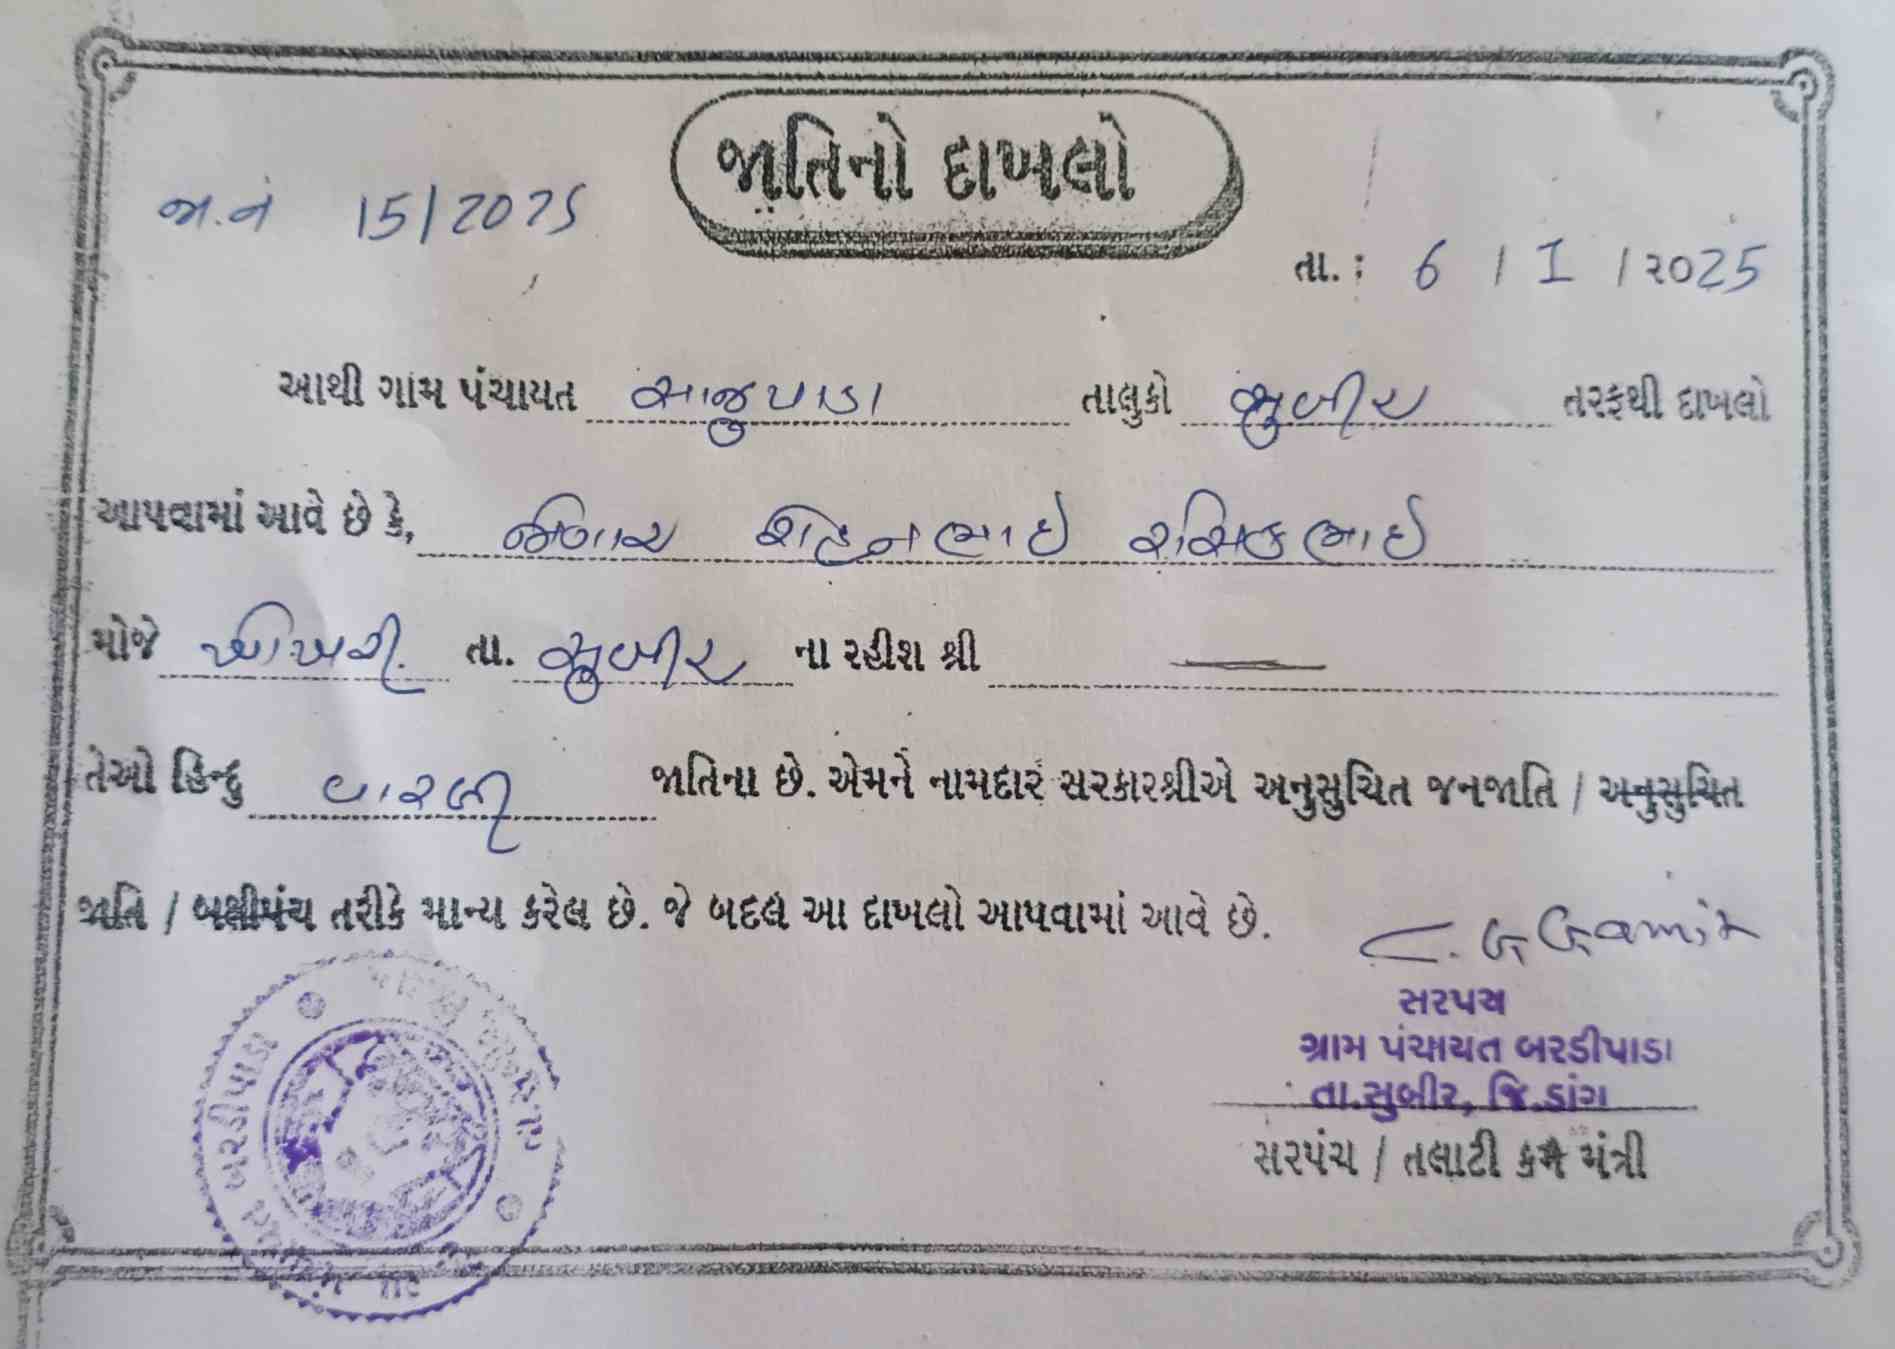 જાતિનો દાખલો
જા.નં 15/2025
તા. : 6 / 1 / ૨૦25
આથી ગામ પંચાયત સાજુપાડા તાલુકો સુબીર તરફથી દાખલો
આપવામાં આવે છે કે, રસિકભાઇ
મોજે તા. સુબીર ના રહીશ શ્રી
તેઓ હિન્દુ વારલી જાતિના છે. એમને નામદાર સરકારશ્રીએ અનુસુચિત જનજાતિ / અનુસુચિત
જાતિ / બક્ષીપંચ તરીકે માન્ય કરેલ છે. જે બદલ આ દાખલો આપવામાં આવે છે.
C. G Gamit
સરપચ
ગ્રામ પંચાયત બરડીપાડા
તા.સુબીર, જિ.ડાંગ
સરપંચ / તલાટી કમ મંત્રી
બરડીપાડા